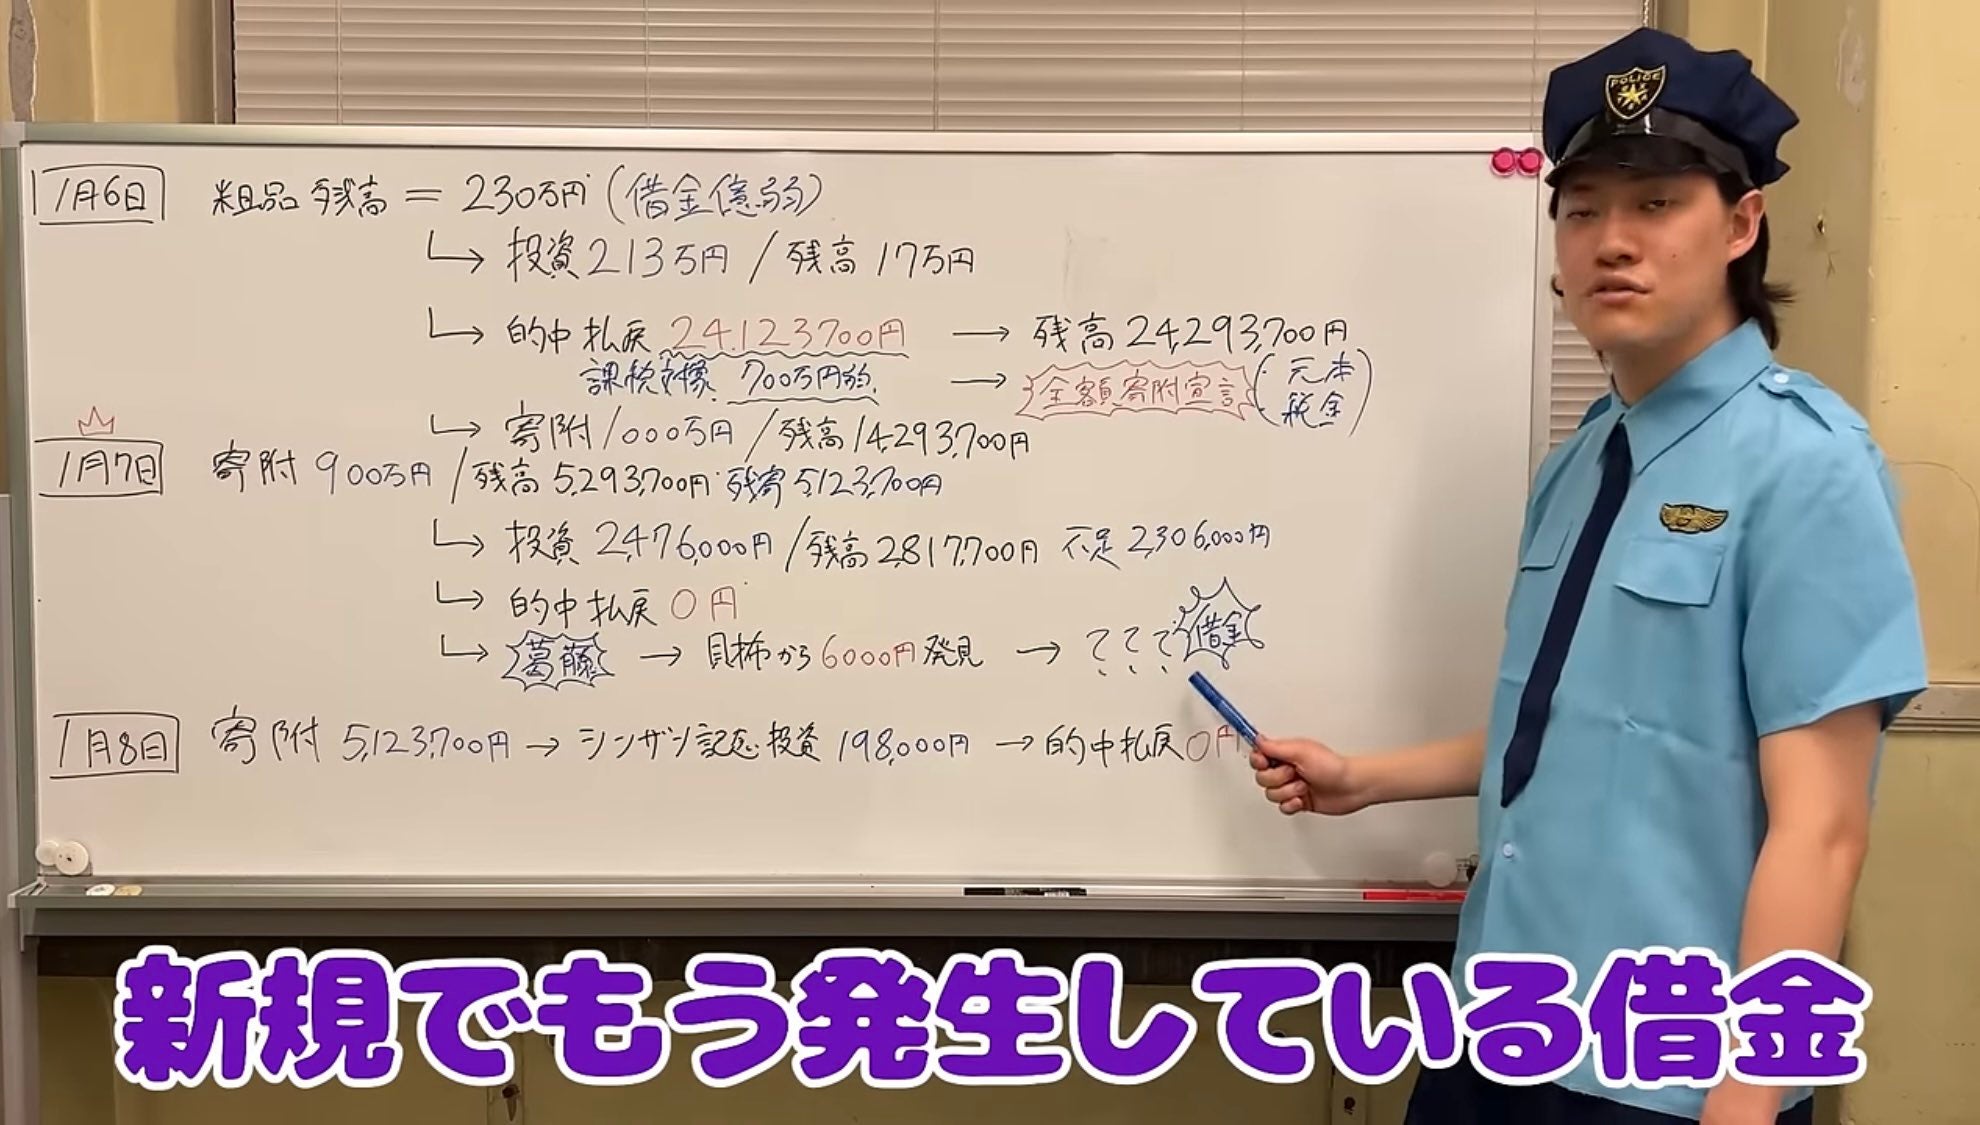 POLICE
1月6日 粗品 残高 = 230万円 (借金億弱)
↳ 投資 213万円 / 残高 17万円
↳ 的中払戻 24,123,700円 → 残高 24,293,700円
課税対象 700万円的 → 全額寄附宣言 (元本 税金)
↳ 寄附 1000万円 / 残高 14,293,700円
1月7日 寄附 900万円 / 残高 5,293,700円 残寄 5,123,700円
↳ 投資 2,476,000円 / 残高 2,817,700円 不足 2,306,000円
↳ 的中払戻 0円
↳ 葛藤 → 財布から 6000円 発見 → ??? 借金
1月8日 寄附 5,123,700円 → シンザン記念 投資 198,000円 → 的中払戻 0円
新規でもう発生している借金